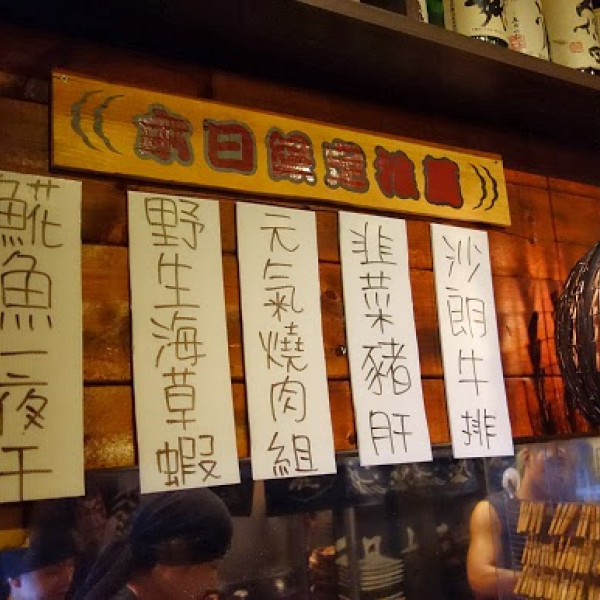 本日限定推薦
沙朗牛排
韭菜豬肝
元氣燒肉組
野生海草蝦
𩸽魚一夜干